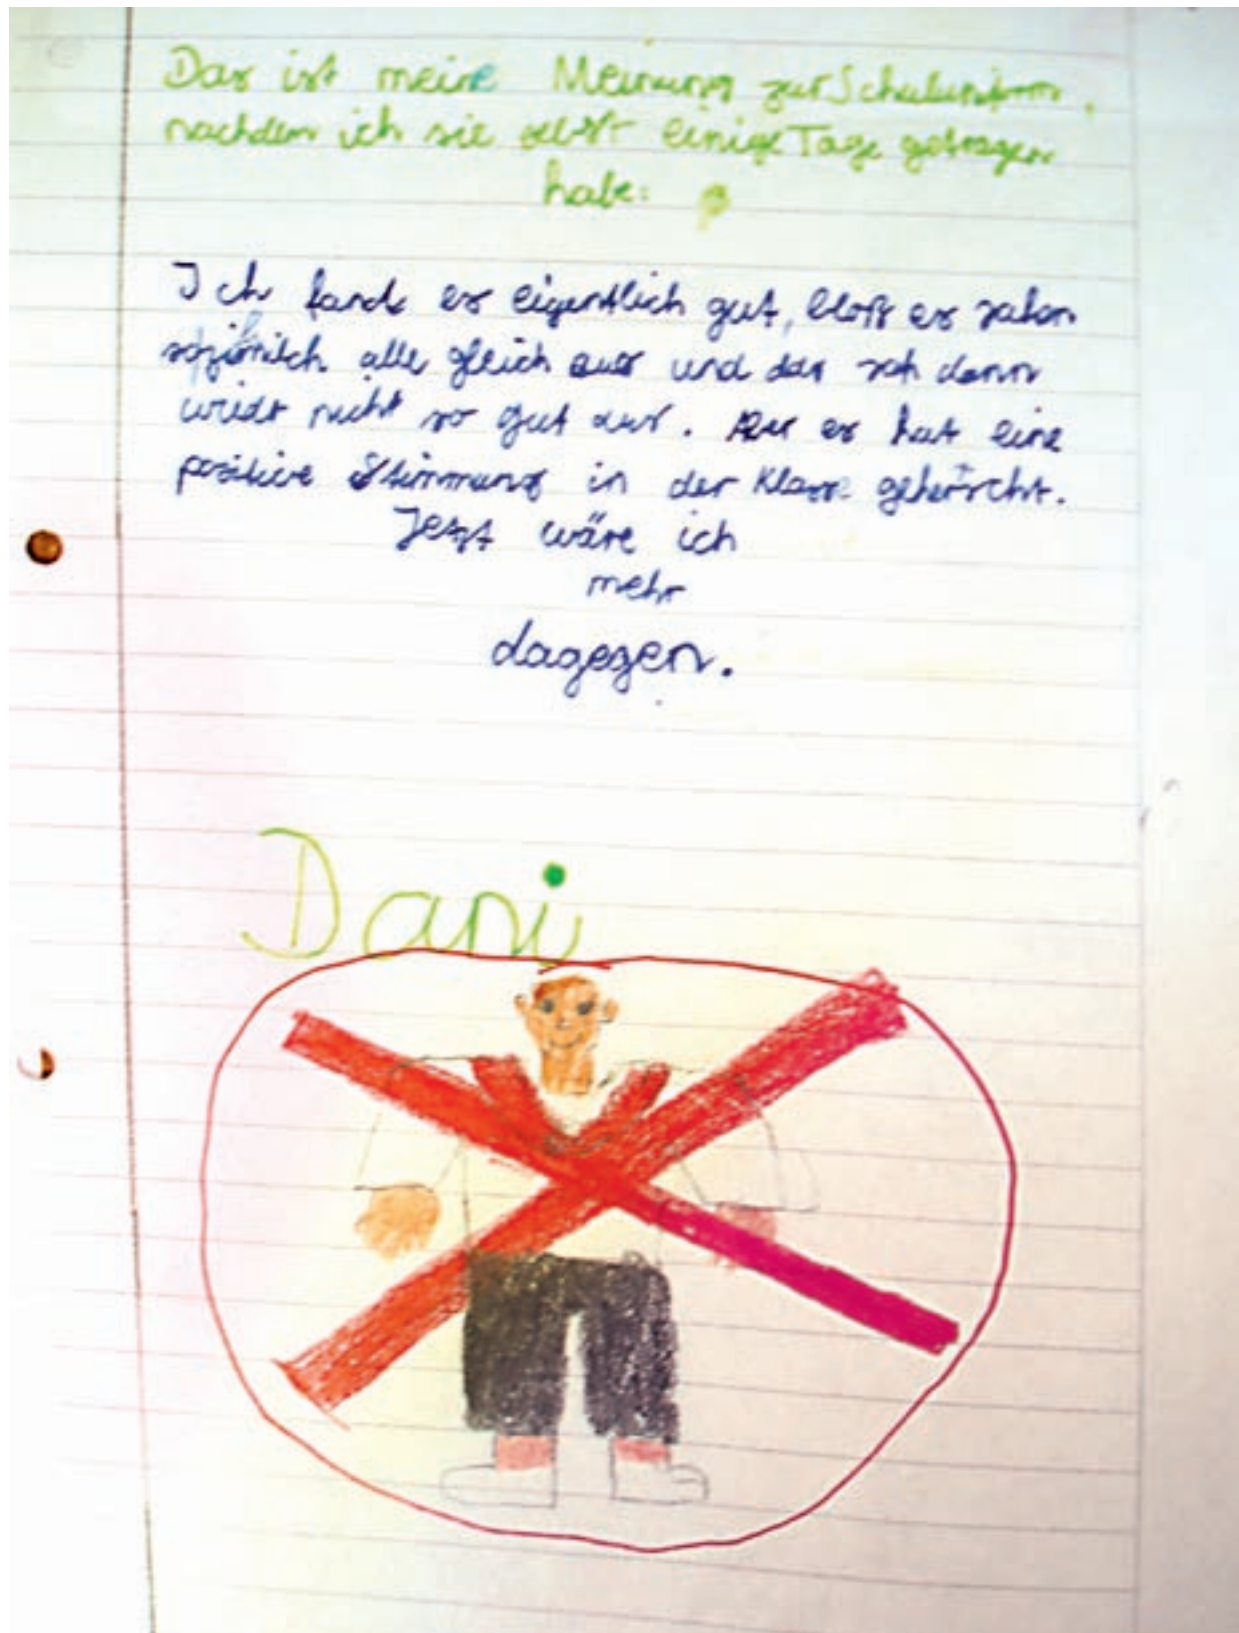 Das ist meine Meinung zur Schuluniform,
nachdem ich sie selbst einige Tage getragen
habe:
Ich fand es eigentlich gut, bloß es sahen
alle gleich aus und das sah dann
wieder nicht so gut aus. Aber es hat eine
positive Stimmung in der Klasse geherrscht.
Jetzt wäre ich
mehr
dagegen.
Dani